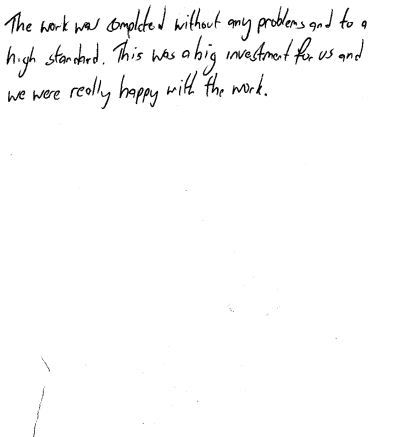 The work was completed without any problems and to a
high standard. This was a big investment for us and
we were really happy with the work.